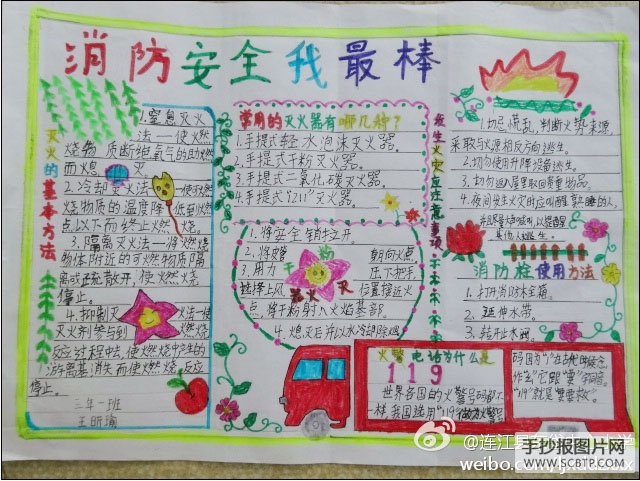 消防安全我最棒
灭火的基本方法
1.窒息灭火
法一使燃
烧物质断绝氧气的助燃
而熄灭
2.冷却灭火法一使可燃
烧物质的温度降低至燃
点以下而终止燃烧
3.隔离灭火法一将燃烧
物体附近的可燃物质隔
离或疏散开,使燃烧
停止。
4.抑制灭火法一使
灭火剂参与到燃烧
反应过程中去,使燃烧中产生的
游离基消失而使燃烧反应
停止。
三年一班
常用的灭火器有哪几种?
1.手提式轻水泡沫灭火器。
2.手提式干粉灭火器。
3.手提式二氧化碳灭火器。
4.手提式"1211"灭火器。
干粉灭火器
1.将安全销拉开。
2.将皮管朝向火点。
3.用力压下把手,
选择上风位置接近火
点,将干粉射入火焰基部。
4.熄灭后并以水冷却除烟
发生火灾应注意事项
1.切忌慌乱,判断火势来源,
采取与火源相反方向逃生。
2.切勿使用升降设备逃生。
3.切勿返入屋里取回贵重物品。
4.夜间发生火灾时应叫醒熟睡的人,
并且尽量大声喊叫,以提醒
其他人逃生。
消防栓使用方法
1.打开消防木全箱。
2.延伸水带。
3.转开水阀。
火警电话为什么是
119
世界各国的火警号码都不一
样,我国选用"119"做为火警号
码因为"1"在古代时候念
作"幺"它跟"要"
"119"就是"要要救"。
@连江县
weibo.com/
手抄报图片网
WWW.SCBTP.COM